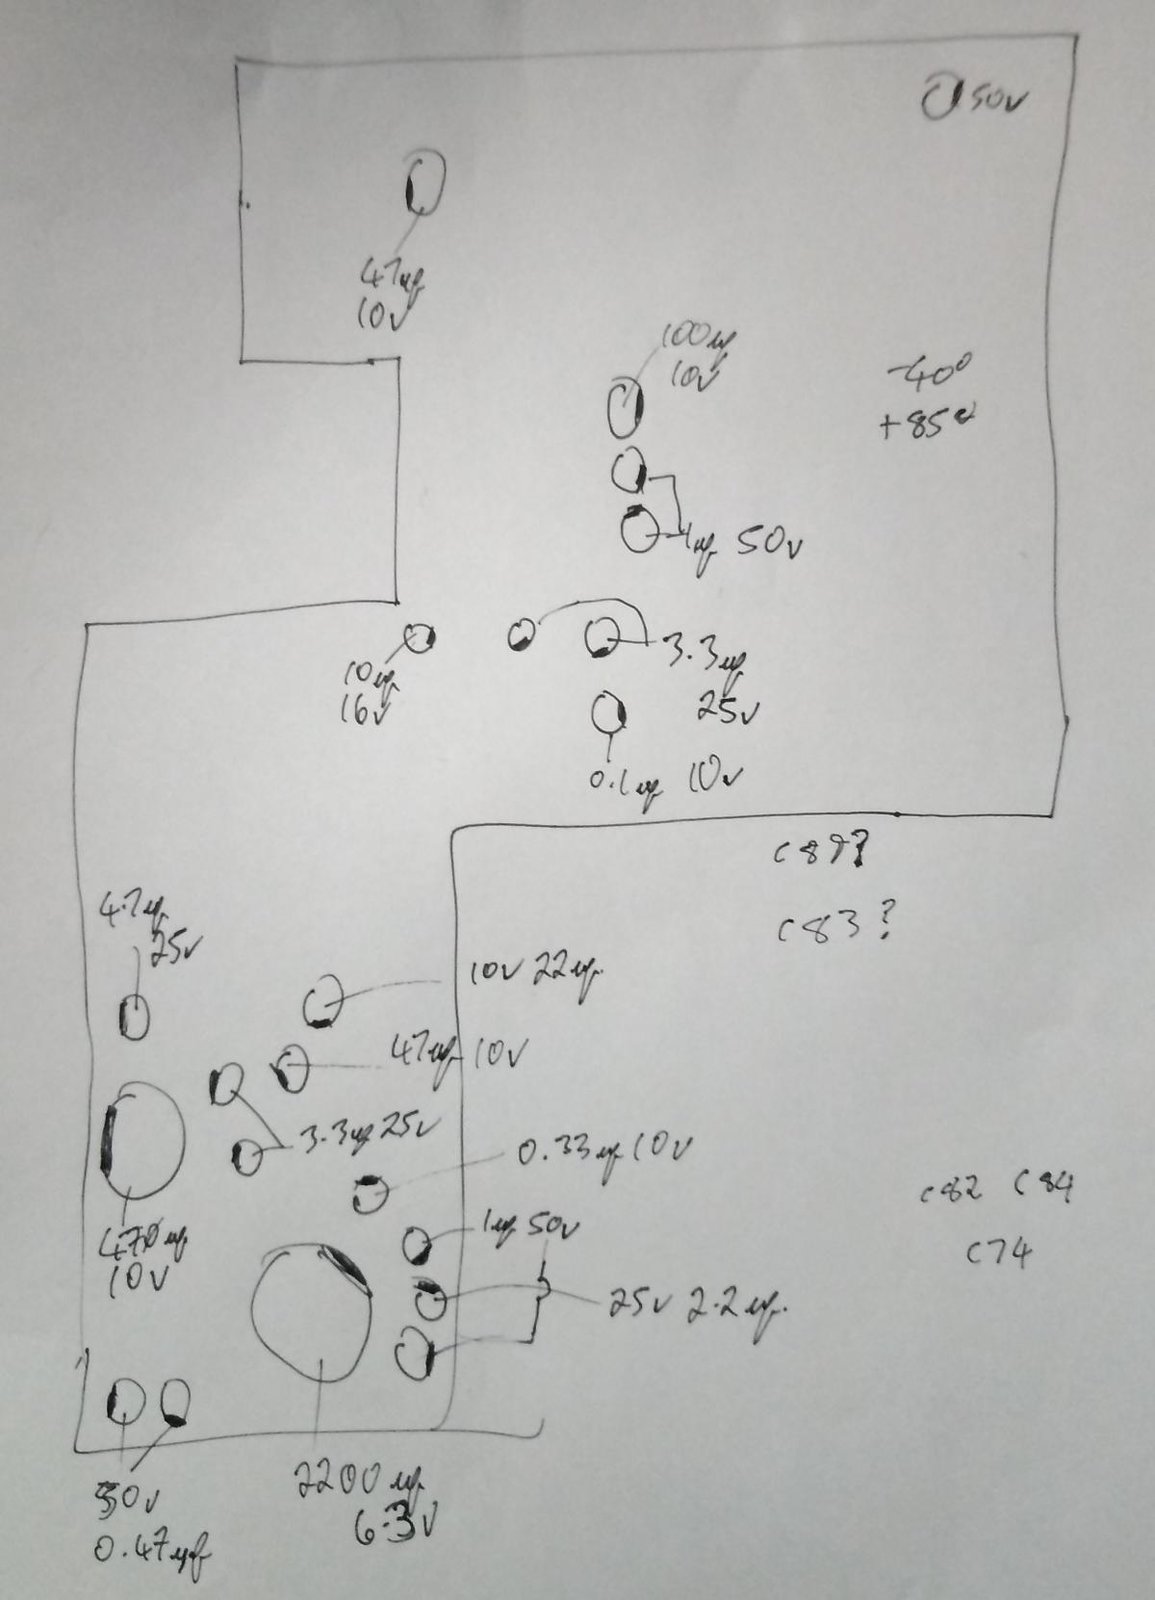 50v
47uf
10v
100uf
10v
-40°
+85°
1uf 50v
10uf
16v
3.3uf
25v
0.1uf 10v
C87?
C83?
4.7uf
25v
10v 22uf
47uf 10v
3.3uf 25v
0.33uf 10v
C82 C84
C74
470uf
10v
1uf 50v
25v 2.2uf.
50v
0.47uf
2200uf
6.3v